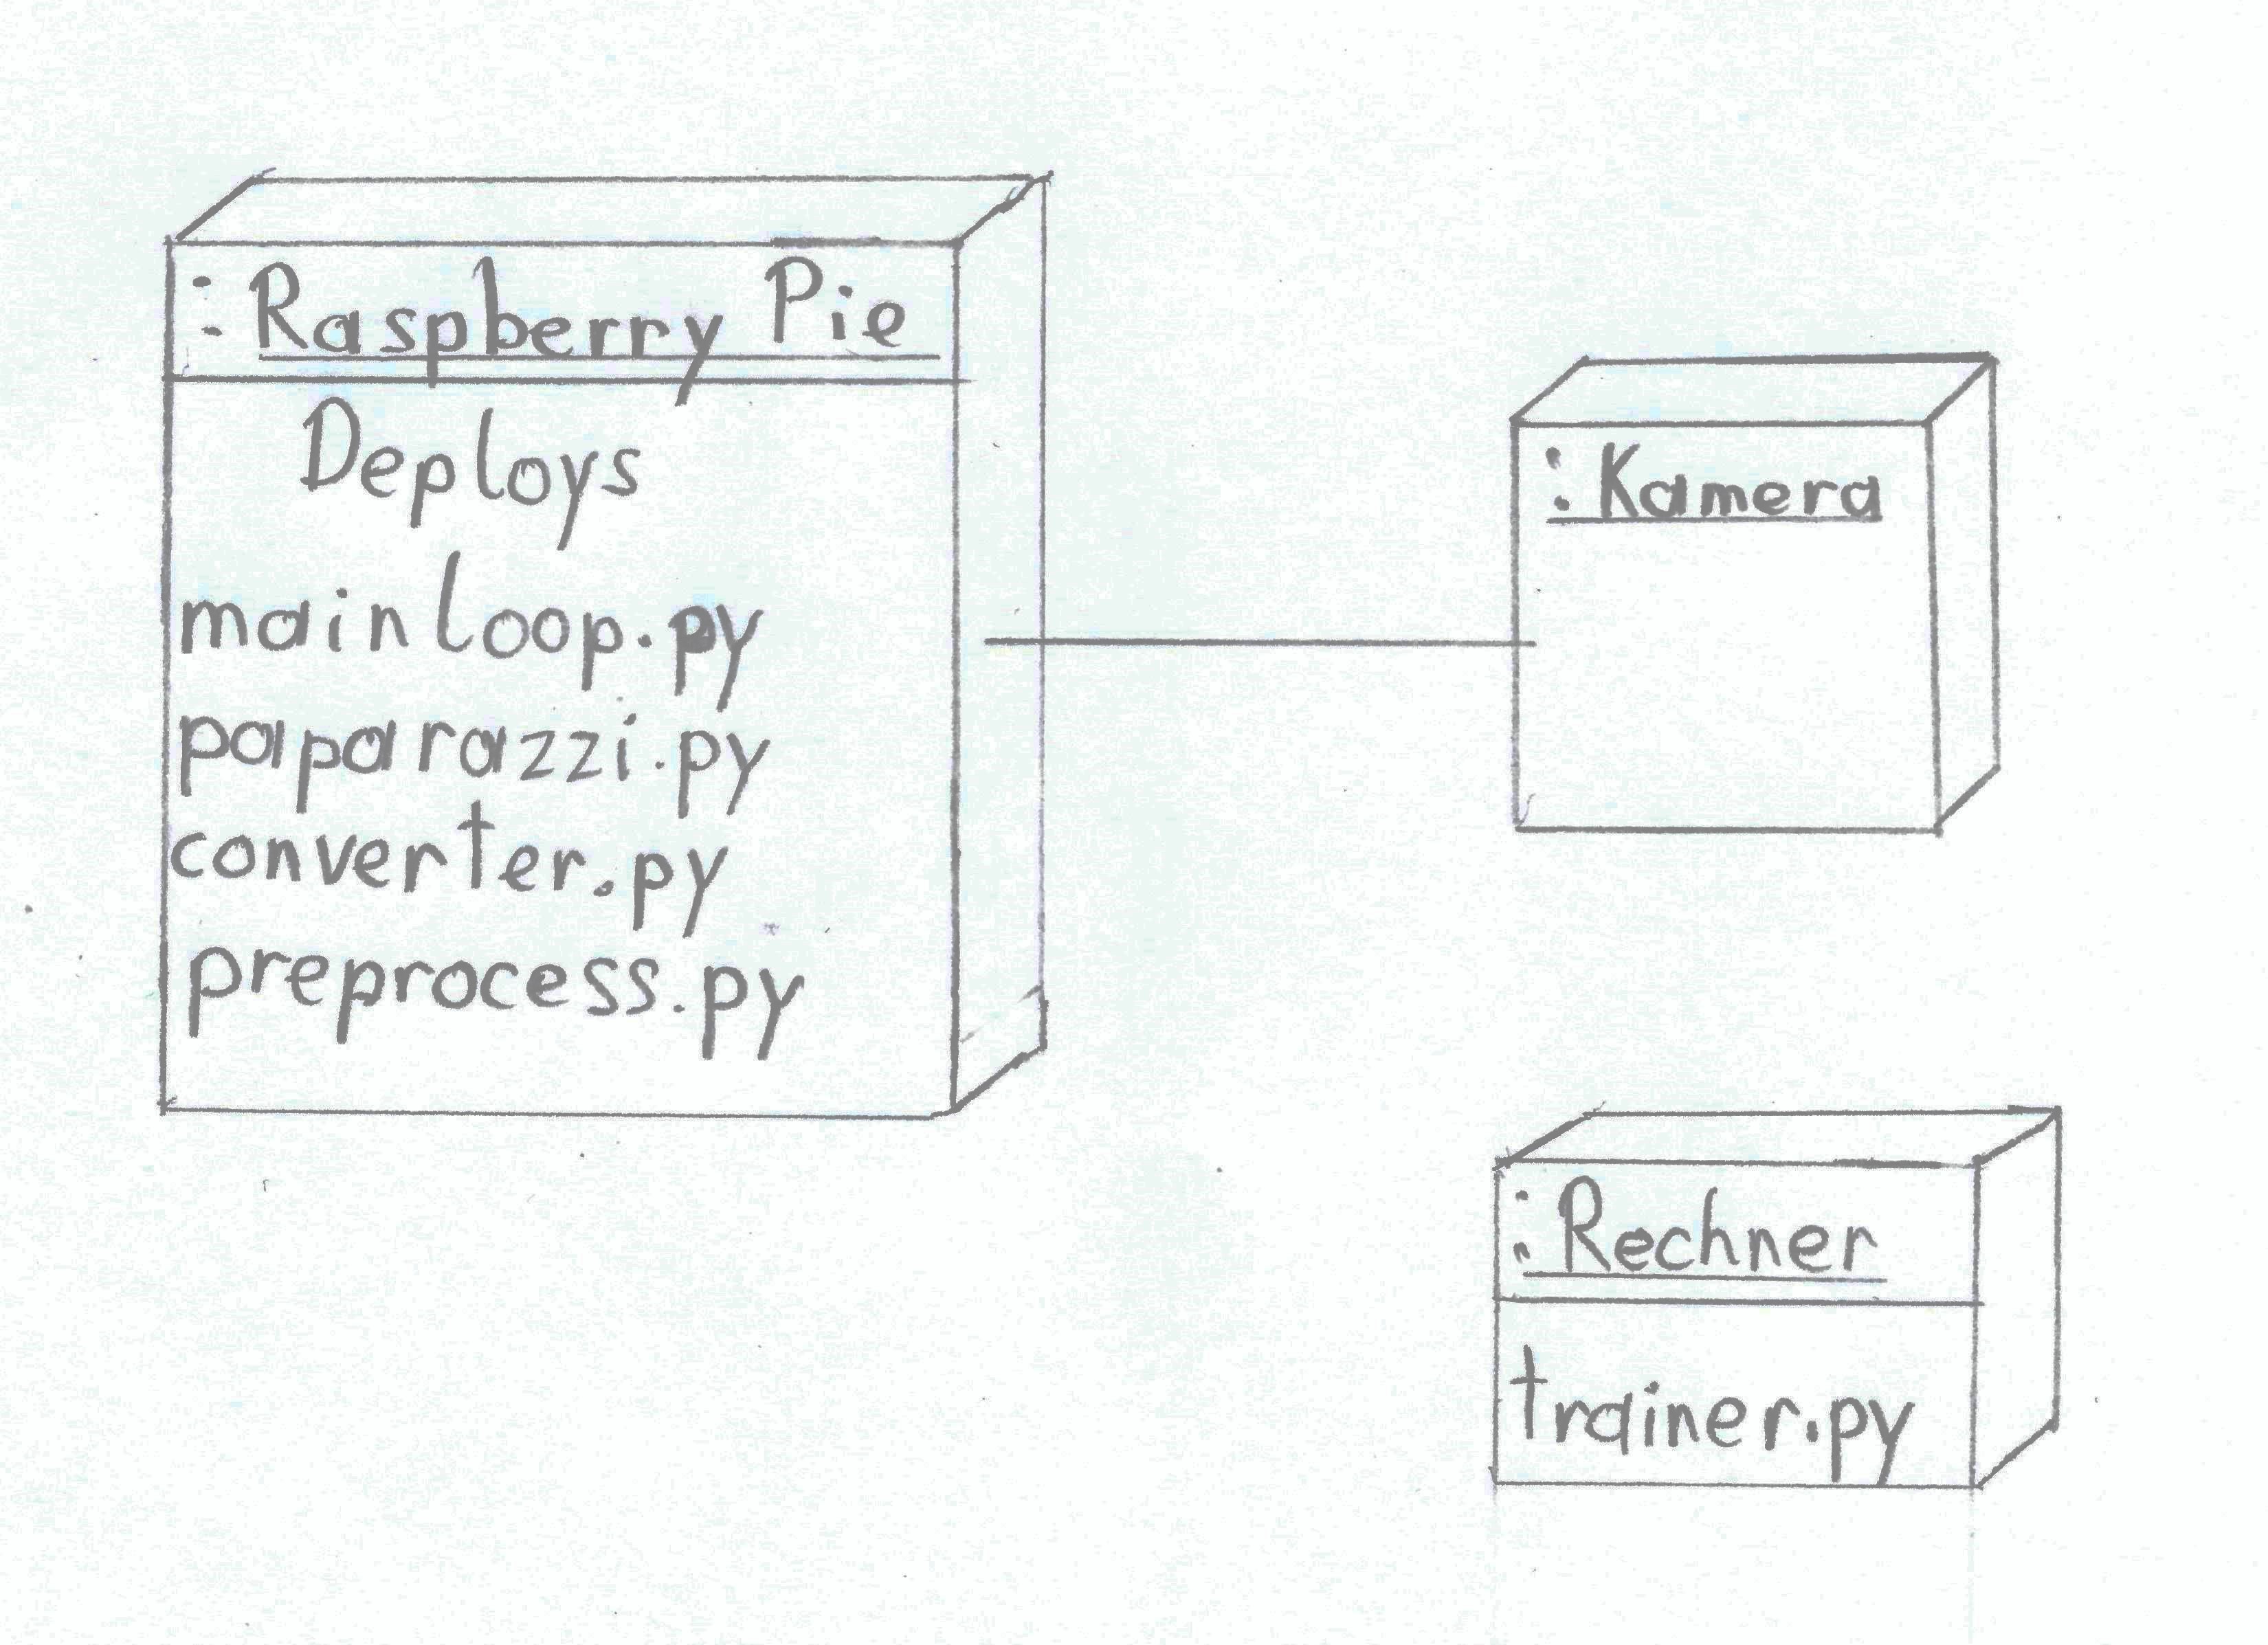 : Raspberry Pie
Deploys
mainloop.py
paparazzi.py
converter.py
preprocess.py
: Kamera
: Rechner
trainer.py